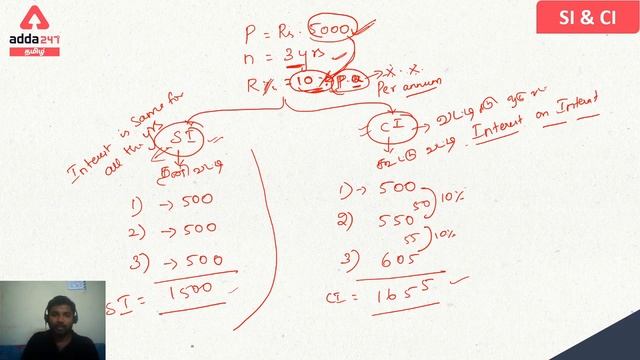 adda247
தமிழ்
SI & CI
P = Rs. 5000
n = 3 yrs
R % = 10 % P.a
Per annum
Interest is same for
all the yrs
SI
தனி வட்டி
1) → 500
2) → 500
3) → 500
SI = 1500
CI → வட்டிக்கு
கூட்டு வட்டி. Interest on Interest
1) → 500
50 10%
2) 550
55 10%
3) 605
CI = 1655